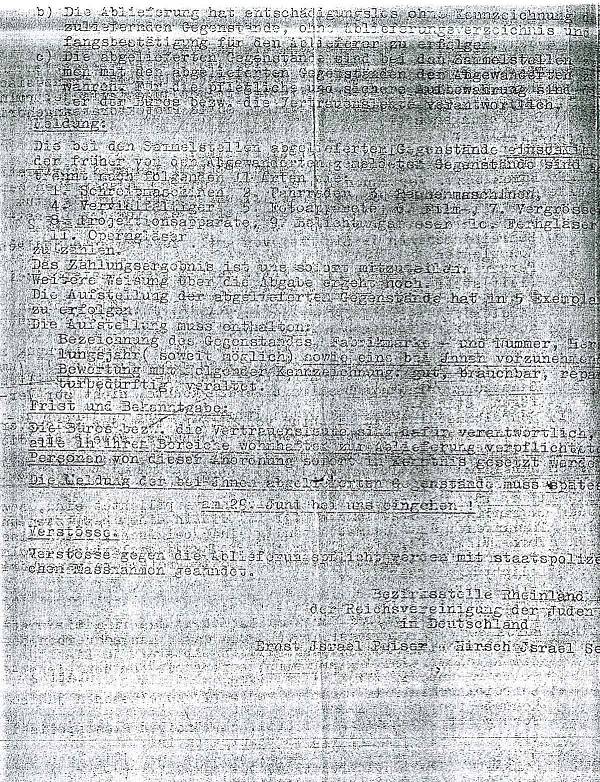 b) Die Ablieferung hat entschädigungslos ohne Kennzeichnung d
zuliefernden Gegenstände, ohne Ablieferungsverzeichnis und
fangsbestätigung für den Ablieferer zu erfolgen.
c) Die abgelieferten Gegenstände sind bei den Sammelstellen
men mit den abgelieferten Gegenständen der Abgewanderten
wahren. Für die pflegliche und sichere Aufbewahrung sind
ter der Büros bezw. die Vertrauensleute verantwortlich.
Meldung:
Die bei den Sammelstellen abgelieferten Gegenstände einschl
der früher von den Abgewanderten gemeldeten Gegenstände sind
nach folgenden 11 Arten
1. Schreibmaschinen 2. Fahrräder 3. Rechenmaschinen,
4. Vervielfältiger 5. Fotoapparate, 6. Film-, 7. Vergrösse
8. Projektionsapparate, 9. Belichtungsmesser 10. Ferngläser
11. Operngläser
zu zählen.
Das Zählungsergebnis ist uns sofort mitzuteilen.
Weitere Weisung über die Abgabe ergeht noch.
Die Aufstellung der abgelieferten Gegenstände hat in 5 Exempla
zu erfolgen.
Die Aufstellung muss enthalten:
Bezeichnung des Gegenstandes, Fabrikmarke - und Nummer, Her
lungsjahr( soweit möglich) sowie eine bei Ihnen vorzunehmen
Bewertung mit folgender Kennzeichnung: gut, brauchbar, repa
turbedürftig, veraltet.
Frist und Bekanntgabe:
Die Büros bezw. die Vertrauensleute sind dafür verantwortlich,
alle in ihrem Bereiche wohnhaften zur Ablieferung verpflichtete
Personen von dieser Anordnung sofort in Kenntnis gesetzt werde
Die Meldung der bei Ihnen abgelieferten Gegenstände muss späte
am 29. Juni bei uns eingehen !
Verstösse.
Verstösse gegen die Ablieferungspflicht werden mit staatspolize
chen Massnahmen geahndet.
Bezirksstelle Rheinland
der Reichsvereinigung der Juden
in Deutschland
Ernst Jsrael Peiser Hirsch Jsrael Se